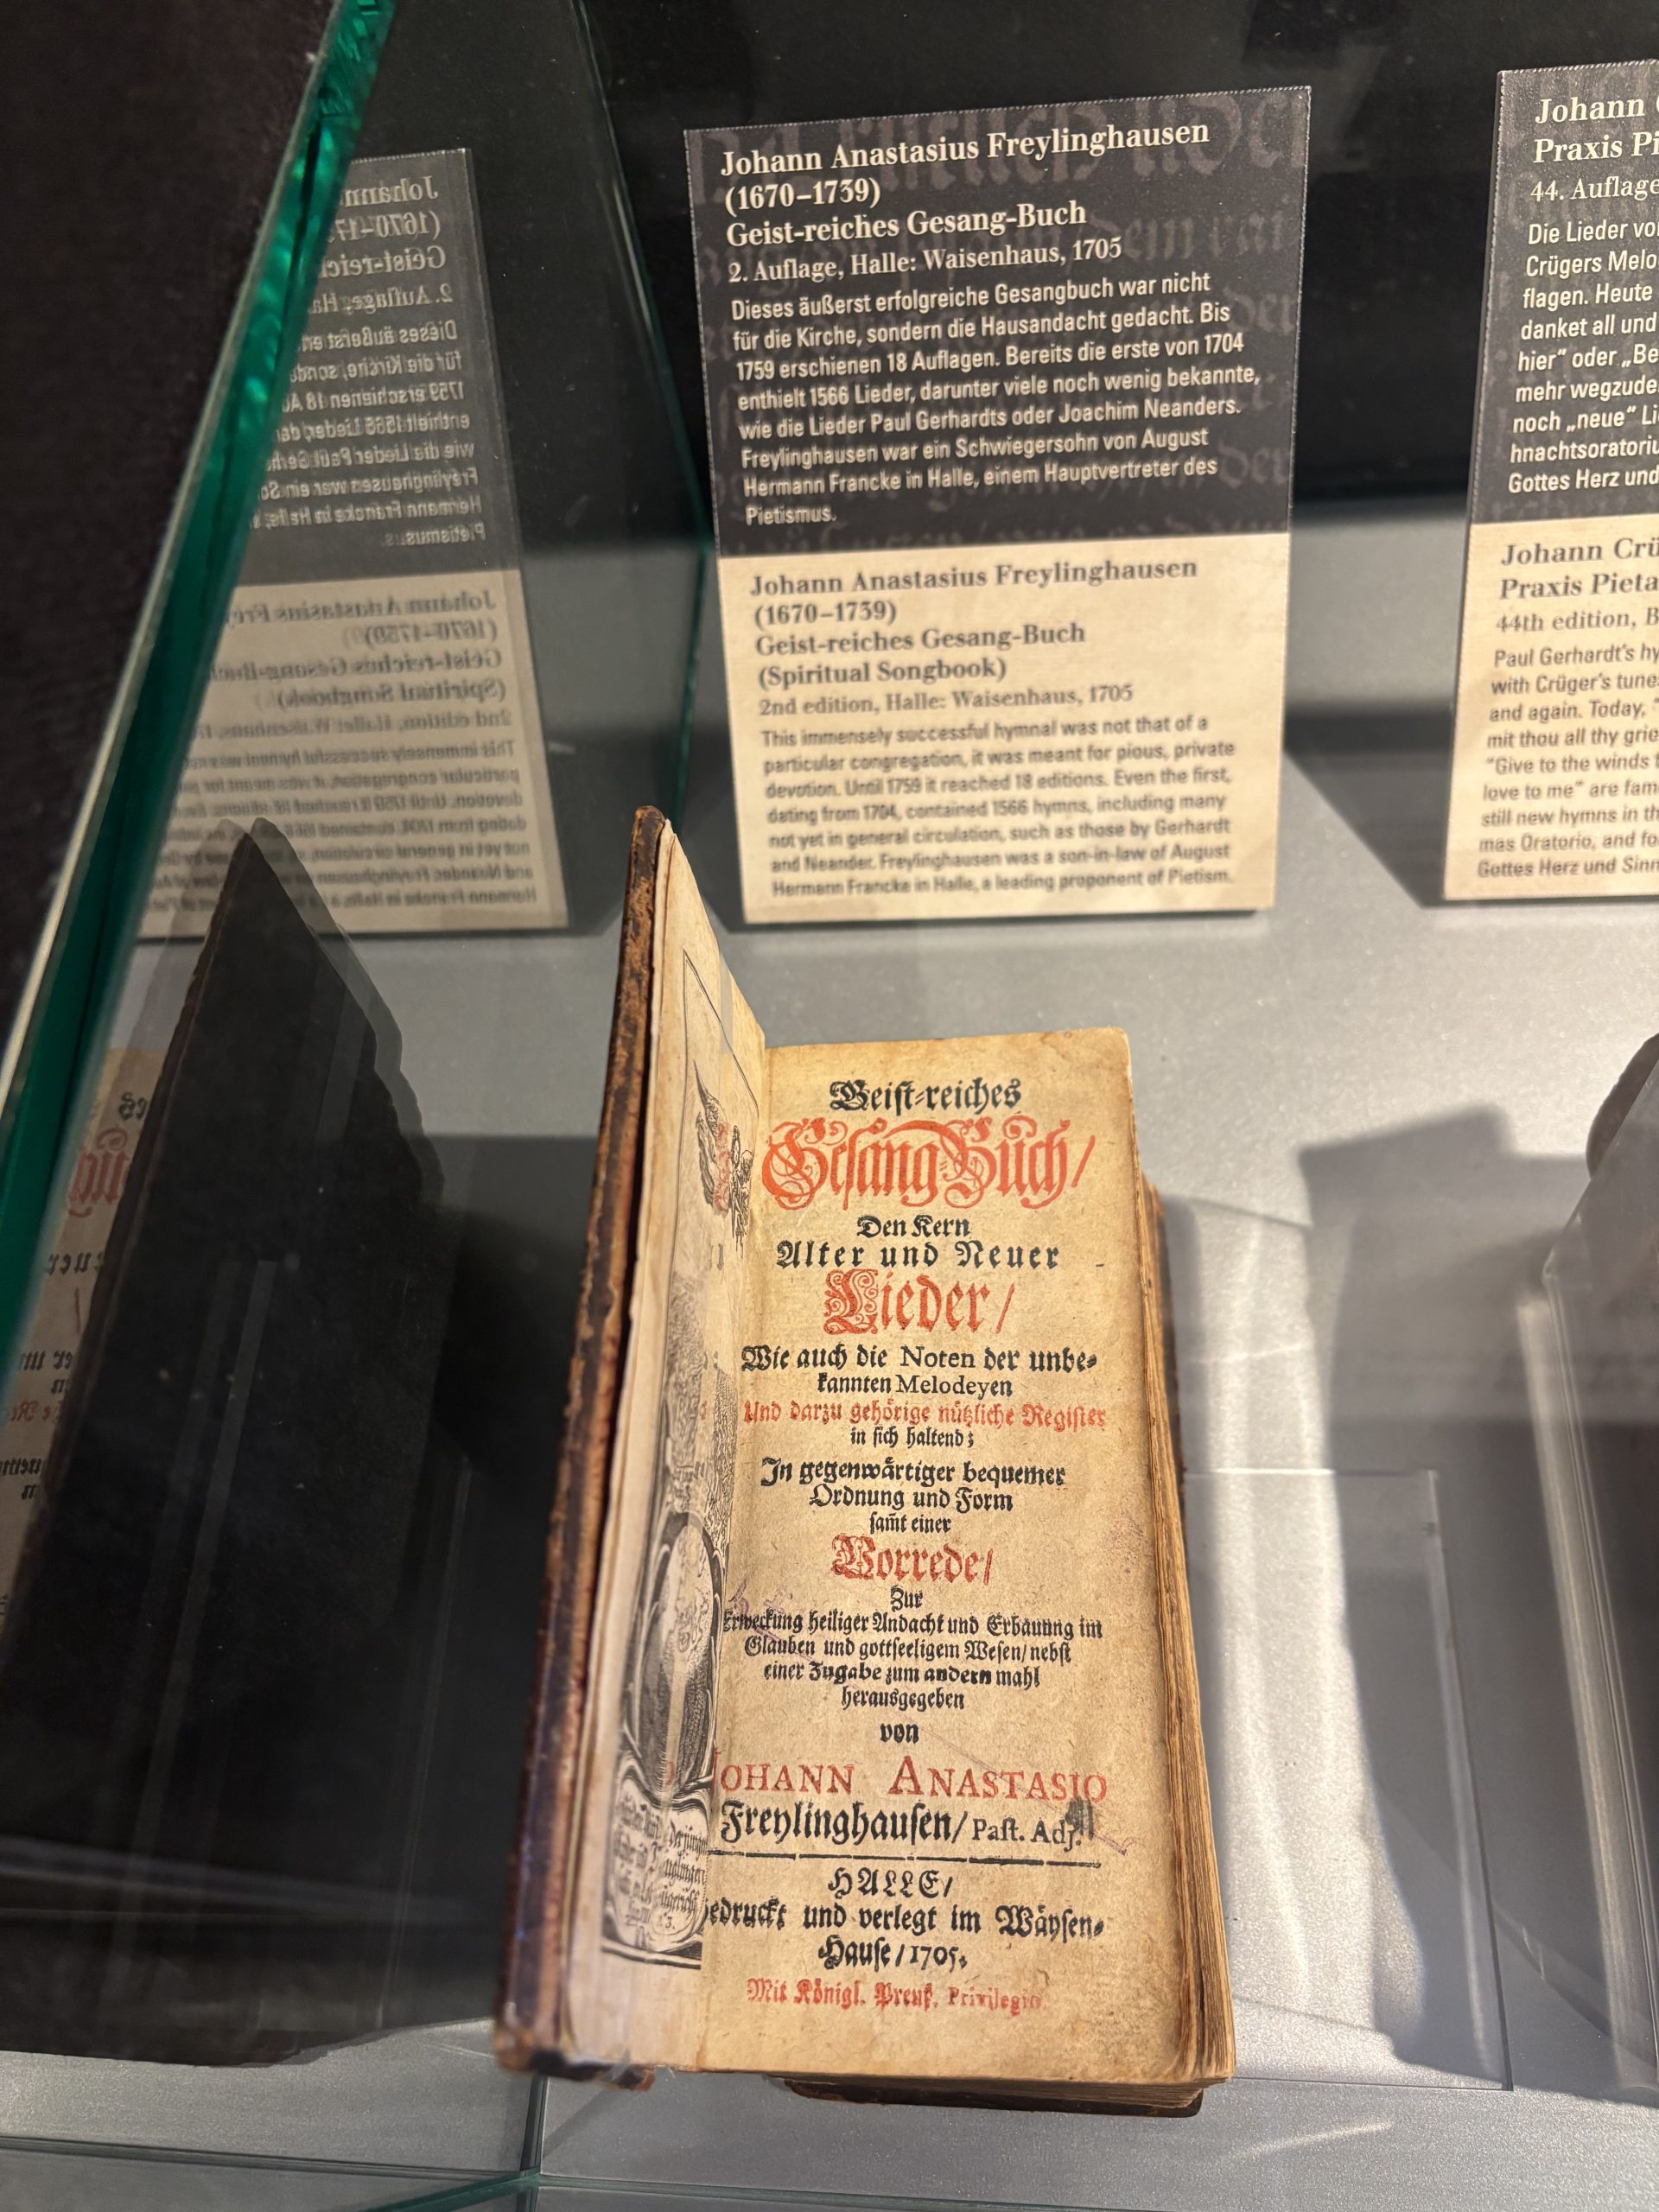 Johann Anastasius Freylinghausen
(1670–1739)
Geist-reiches Gesang-Buch
2. Auflage, Halle: Waisenhaus, 1705
Dieses äußerst erfolgreiche Gesangbuch war nicht
für die Kirche, sondern die Hausandacht gedacht. Bis
1759 erschienen 18 Auflagen. Bereits die erste von 1704
enthielt 1566 Lieder, darunter viele noch wenig bekannte,
wie die Lieder Paul Gerhardts oder Joachim Neanders.
Freylinghausen war ein Schwiegersohn von August
Hermann Francke in Halle, einem Hauptvertreter des
Pietismus.
Johann Anastasius Freylinghausen
(1670–1739)
Geist-reiches Gesang-Buch
(Spiritual Songbook)
2nd edition, Halle: Waisenhaus, 1705
This immensely successful hymnal was not that of a
particular congregation, it was meant for pious, private
devotion. Until 1759 it reached 18 editions. Even the first,
dating from 1704, contained 1566 hymns, including many
not yet in general circulation, such as those by Gerhardt
and Neander. Freylinghausen was a son-in-law of August
Hermann Francke in Halle, a leading proponent of Pietism.
Johann
Praxis
44. Auflage
Die Lieder
Crügers
flagen. Heute
danket all und
hier" oder
mehr
noch „neue"
Gottes Herz und
Johann
Praxis
44th edition,
Paul Gerhardt's
with Crüger's
and again. Today,
mit thou all thy
"Give to the winds
love to me" are
still new hymns in
mas Oratorio, and
Gottes Herz und Sinn
Geist-reiches
Gesang-Buch/
Den Kern
Alter und Neuer
Lieder/
Wie auch die Noten der unbe-
kannten Melodeyen
Und darzu gehörige nützliche Register
in sich haltend;
In gegenwärtiger bequemer
Ordnung und Form
sam̃t einer
Vorrede/
Zur
Erweckung heiliger Andacht und Erbauung im
Glauben und gottseeligem Wesen/ nebst
einer Zugabe zum andern mahl
herausgegeben
von
JOHANN ANASTASIO
Freylinghausen/ Past. Adj.
HALLE/
Gedruckt und verlegt im Wäysen-
Hause/ 1705.
Mit Königl. Preuß. Privilegio